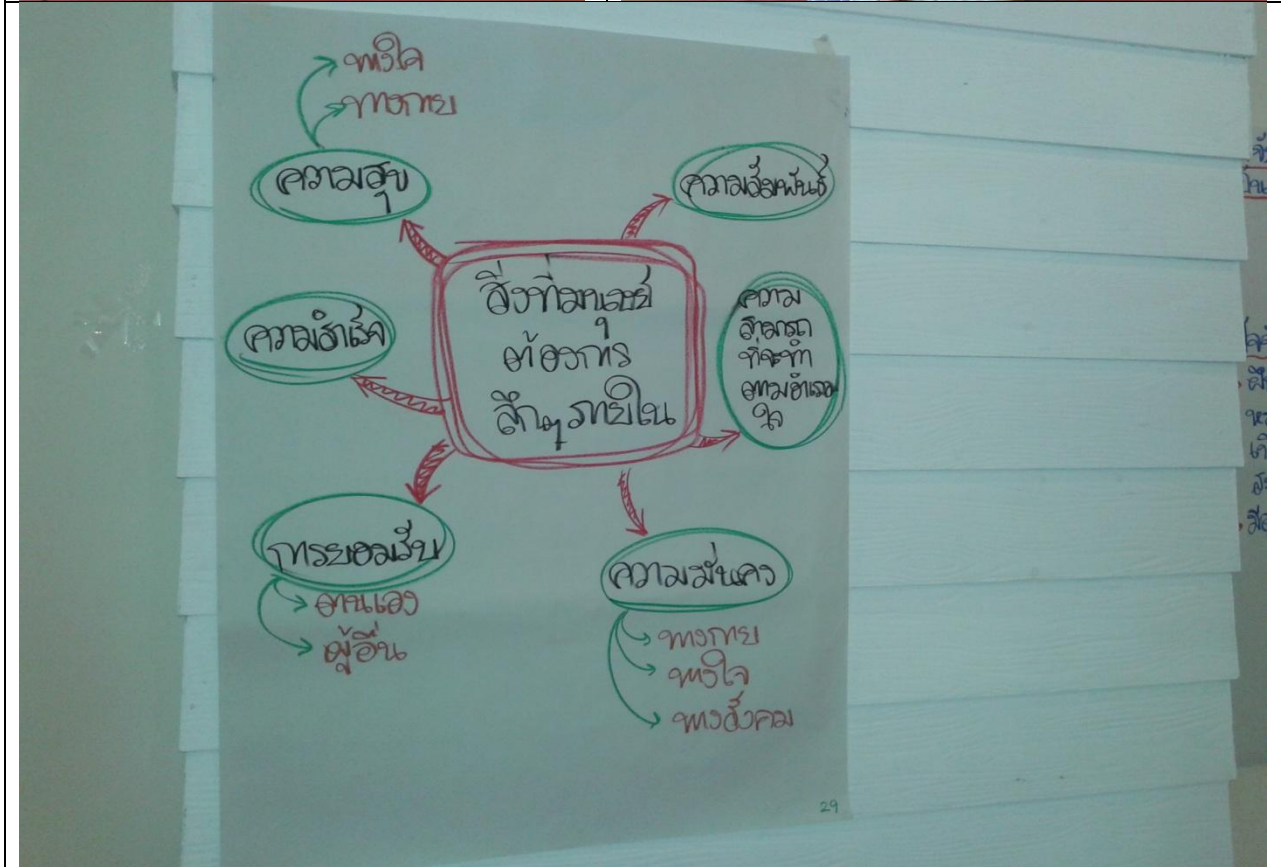 ทางใจ
ทางกาย
ความสุข
ความสัมพันธ์
สิ่งที่มนุษย์
ต้องการ
ลึกๆ ภายใน
ความสำเร็จ
ความ
สามารถ
ที่จะทำ
ตามอำเภอ
ใจ
การยอมรับ
ตนเอง
ผู้อื่น
ความมั่นคง
ทางกาย
ทางใจ
ทางสังคม
29